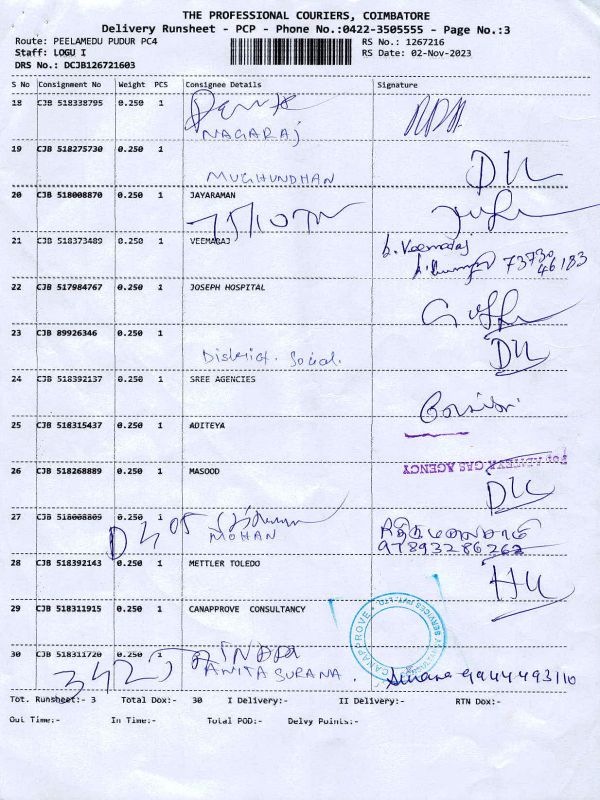 THE PROFESSIONAL COURIERS, COIMBATORE
Delivery Runsheet - PCP - Phone No.:0422-3505555 - Page No.:3
Route: PEELAMEDU PUDUR PC4
RS No.: 1267216
Staff: LOGU I
RS Date: 02-Nov-2023
DRS No.: DCJB126721603
S No Consignment No Weight PCS Consignee Details Signature
18 CJB 518338795 0.250 1
NAGARAJ
19 CJB 518275730 0.250 1
MUGHUNDHAN
20 CJB 518008870 0.250 1 JAYARAMAN
21 CJB 518373489 0.250 1 VEEMARAJ
b. Veemaraj
73730
46183
22 CJB 517984767 0.250 1 JOSEPH HOSPITAL
23 CJB 89926346 0.250 1
District. Social.
24 CJB 518392137 0.250 1 SREE AGENCIES
25 CJB 518315437 0.250 1 ADITEYA
For ADITEYA GAS AGENCY
26 CJB 518268889 0.250 1 MASOOD
27 CJB 518008809 0.250 1
MOHAN
28 CJB 518392143 0.250 1 METTLER TOLEDO
29 CJB 518311915 0.250 1 CANAPPROVE CONSULTANCY
CANAPPROVE SERVICES PVT. LTD
30 CJB 518311720 0.250 1
ANITA SURANA.
Surana 9444493110
Tot. Runsheet:- 3 Total Dox:- 30 I Delivery:- II Delivery:- RTN Dox:-
Out Time:- In Time:- Total POD:- Delvy Points:-